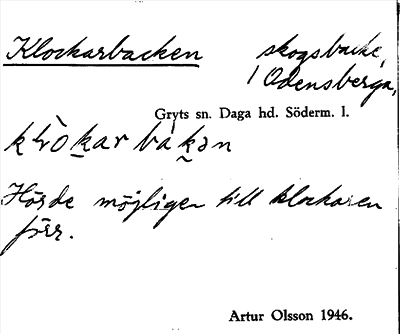 Klockarbacken skogsbacke,
/ Odensberga,
Gryts sn. Daga hd. Söderm. l.
klòkar bàkən
Hörde möjligen till klockaren
förr.
Artur Olsson 1946.